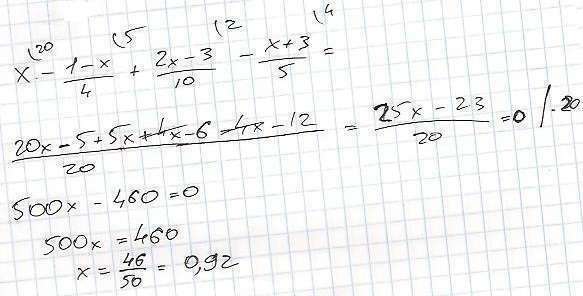 x (20 - (1-x)/4 (5 + (2x-3)/10 (2 - (x+3)/5 (4 =
(20x - 5 + 5x + 4x - 6 - 4x - 12)/20 = (25x - 23)/20 = 0 /·20
500x - 460 = 0
500x = 460
x = 46/50 = 0,92